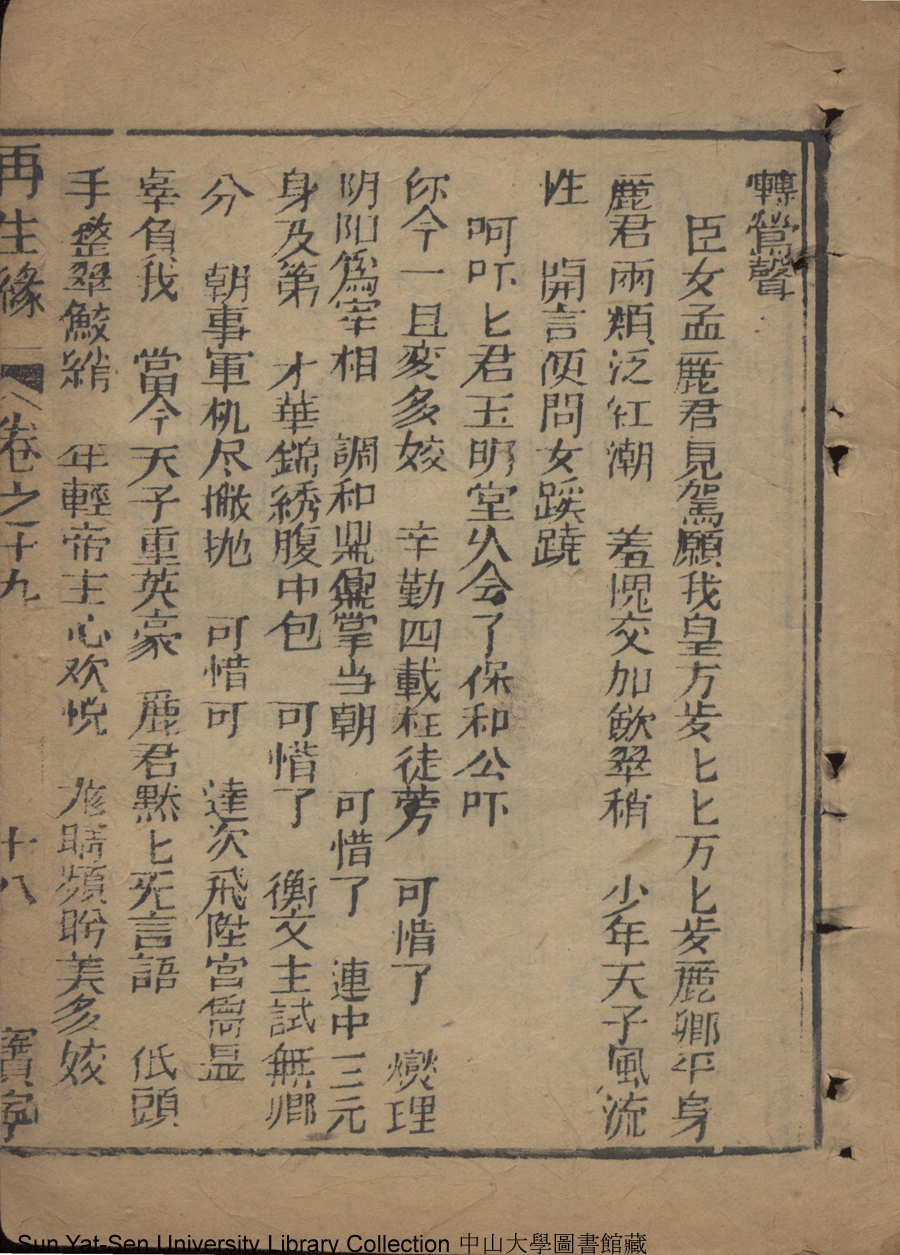 轉鶯聲
臣女孟麗君見駕願我皇万岁匕匕万匕岁麗卿平身
麗君兩頰泛红潮　羞愧交加歛翠稍　少年天子風流
性　開言便問女蹊蹺
呵吓匕君玉明堂火会了保和公吓
你今一旦変多姣　辛勤四載枉徒劳　可惜了　燮理
阴阳爲宰相　調和鼎鼐掌当朝　可惜了　連中三元
身及第　才華錦綉腹中包　可惜了　衡文主試無鄉
分　朝事軍机尽撇抛　可惜可　達次飛陞宫
辜負我　當今天子重英豪　麗君黙匕旡言語　低頭
手整翠鮫綃　年輕帝主心欢悦　龙睛頻盼美多姣
再生緣　卷之十九　十八
Sun Yat-Sen University Library Collection 中山大學圖書館藏